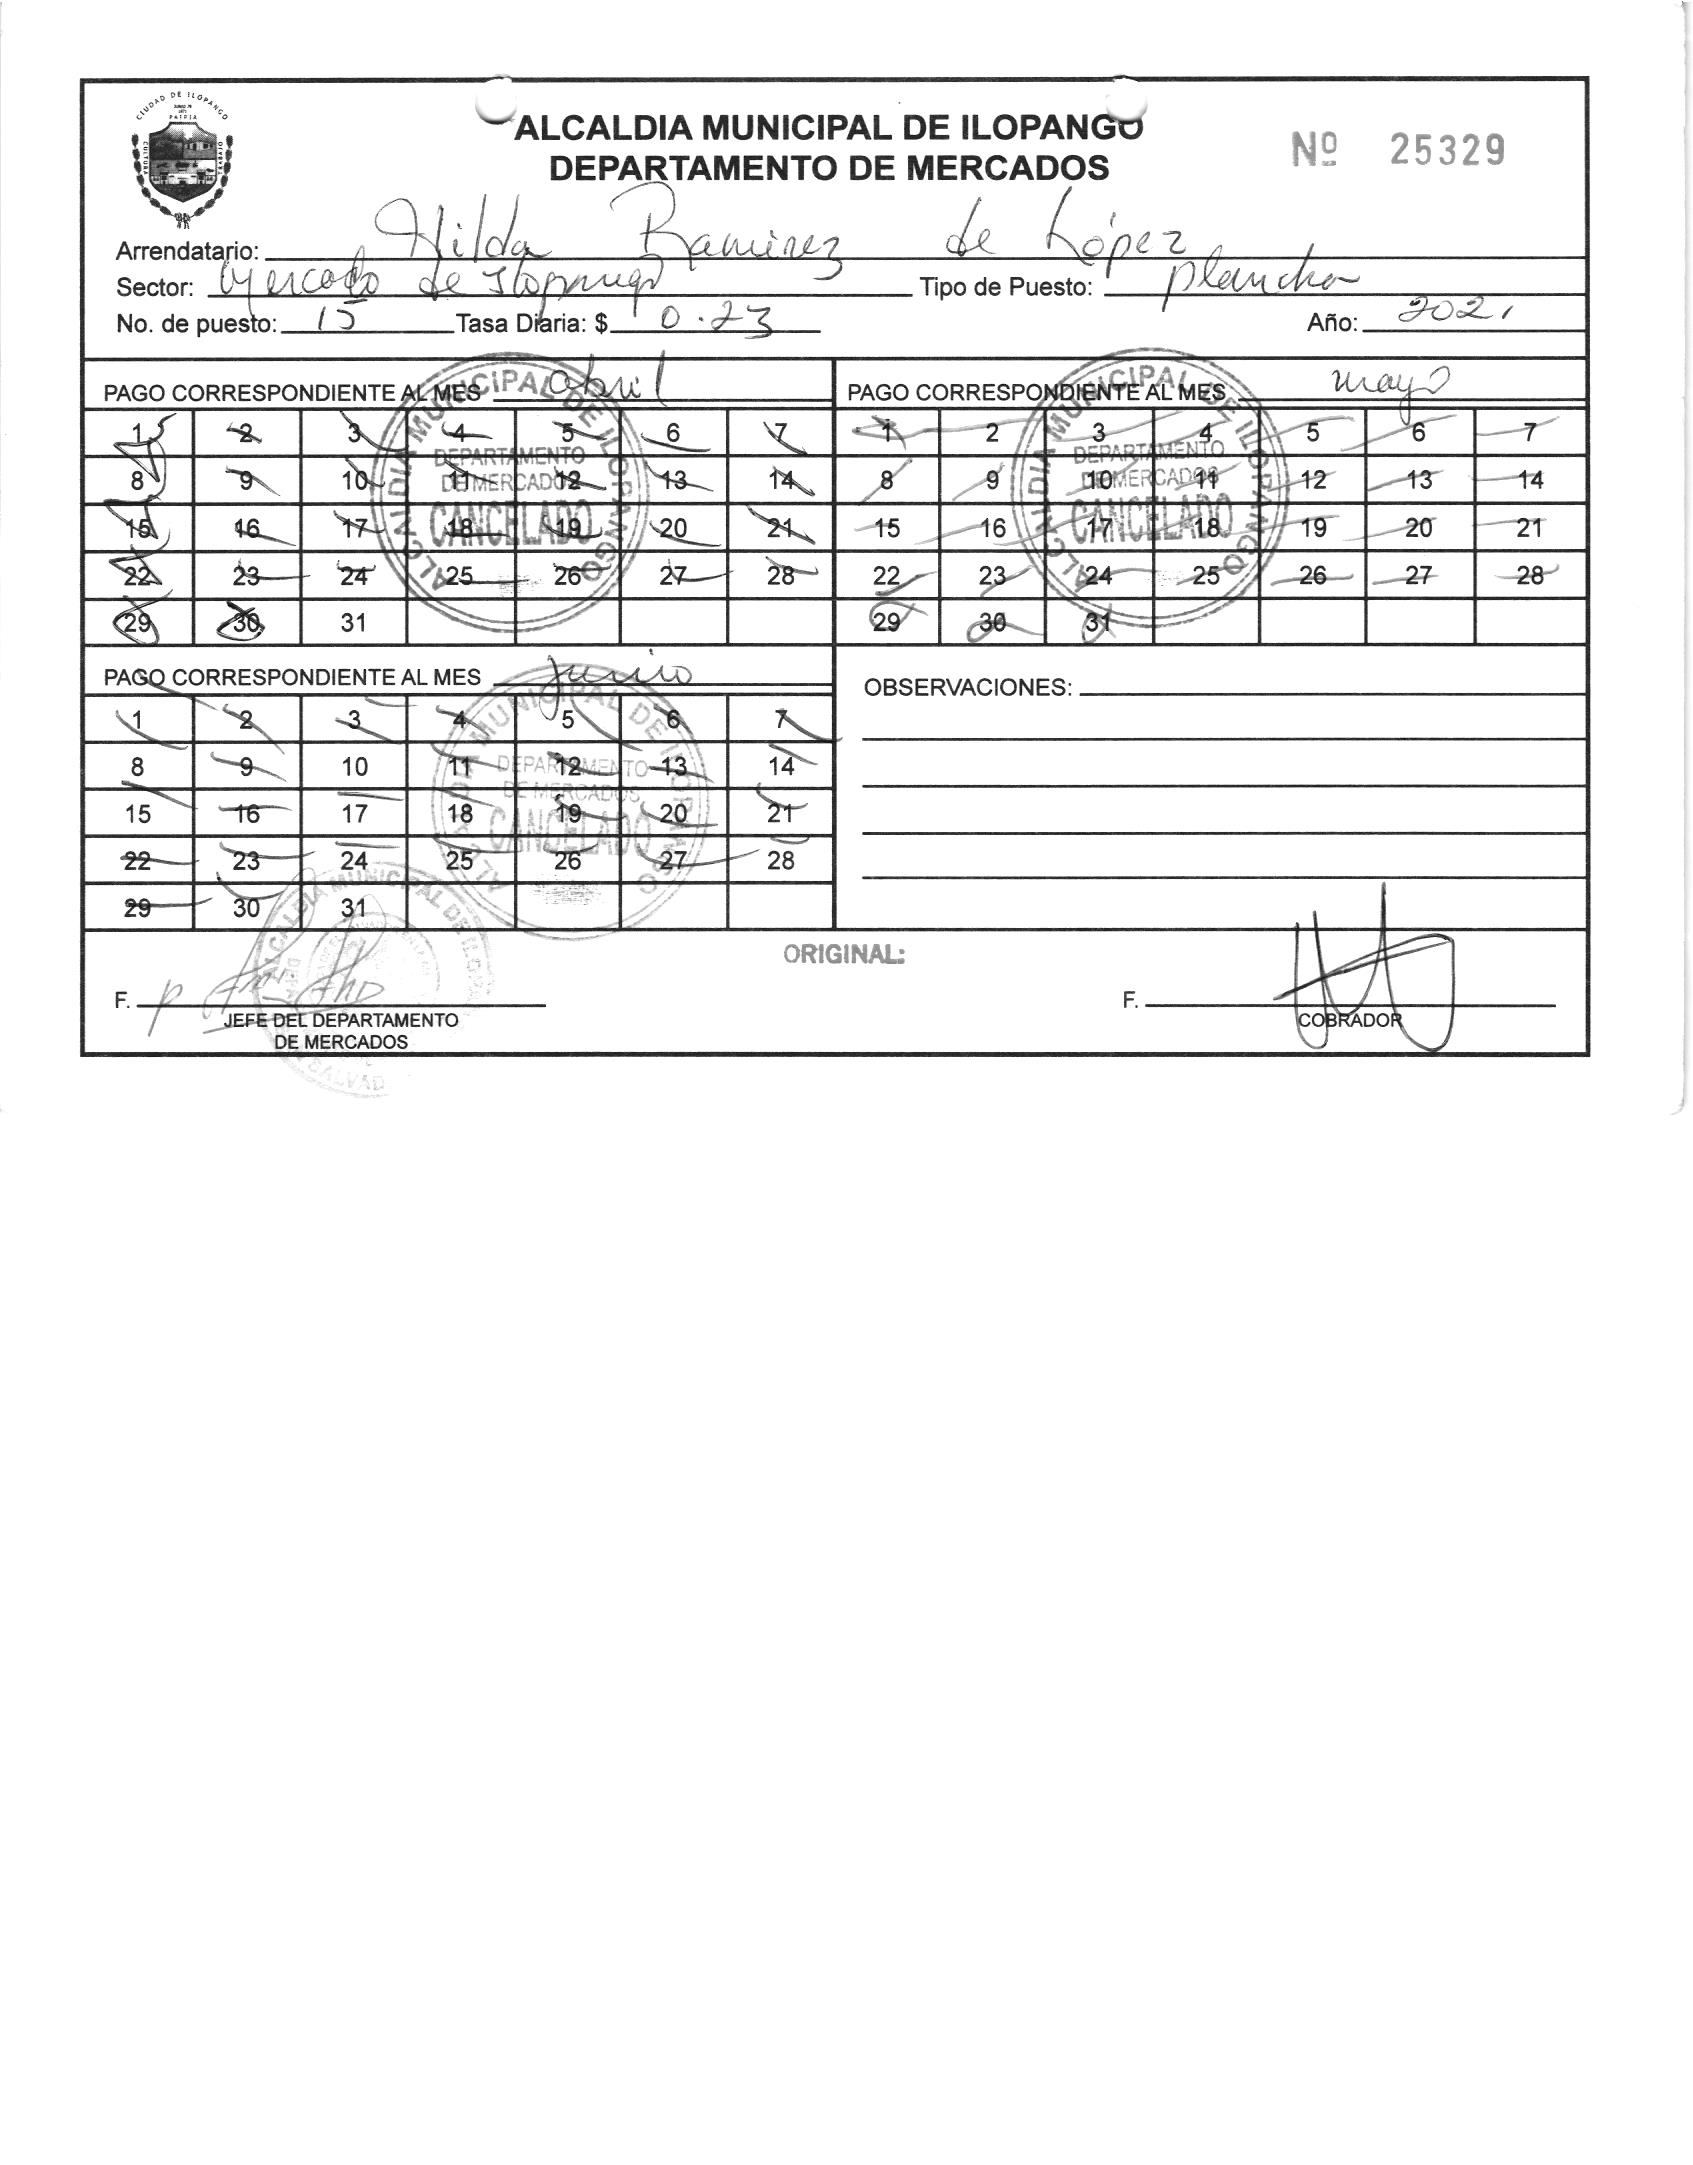 CIUDAD DE ILOPANGO
PATRIA
CULTURA
TRABAJO
ALCALDIA MUNICIPAL DE ILOPANGO
DEPARTAMENTO DE MERCADOS
Nº 25329
Arrendatario: Hilda Ramirez de López
Sector: Mercado de Ilopango Tipo de Puesto: plancha
No. de puesto: 15 Tasa Diaria: $ 0.23 Año: 2021
PAGO CORRESPONDIENTE AL MES abril
1 2 3 4 5 6 7
8 9 10 11 12 13 14
15 16 17 18 19 20 21
22 23 24 25 26 27 28
29 30 31
ALCALDIA MUNICIPAL DE ILOPANGO
DEPARTAMENTO
DE MERCADOS
CANCELADO
PAGO CORRESPONDIENTE AL MES mayo
1 2 3 4 5 6 7
8 9 10 11 12 13 14
15 16 17 18 19 20 21
22 23 24 25 26 27 28
29 30 31
ALCALDIA MUNICIPAL DE ILOPANGO
DEPARTAMENTO
DE MERCADOS
CANCELADO
PAGO CORRESPONDIENTE AL MES junio
1 2 3 4 5 6 7
8 9 10 11 12 13 14
15 16 17 18 19 20 21
22 23 24 25 26 27 28
29 30 31
ALCALDIA MUNICIPAL DE ILOPANGO
DEPARTAMENTO
DE MERCADOS
CANCELADO
OBSERVACIONES:
ORIGINAL:
F.
JEFE DEL DEPARTAMENTO
DE MERCADOS
ALCALDIA MUNICIPAL DE
F.
COBRADOR